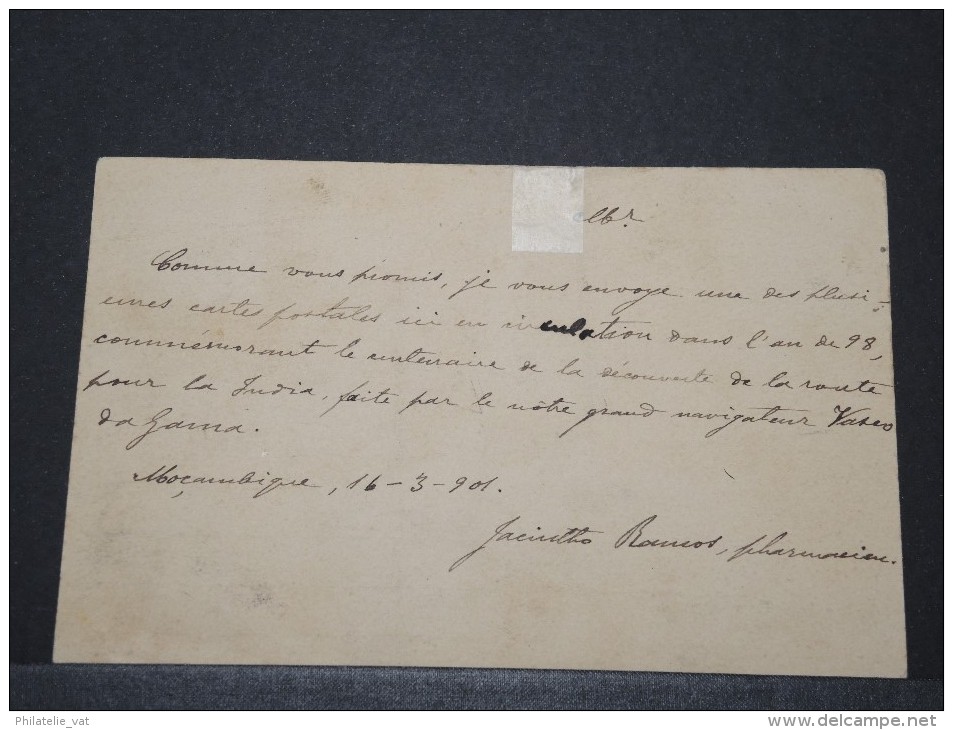 Mr.
Comme vous promis, je vous envoye une des plusi-
eures cartes postales ici en circulation dans l'an de 98,
commémorant le centenaire de la découverte de la route
pour la India, faite par le nôtre grand navigateur Vasco
da Gama.
Moçambique, 16-3-901.
Jacintho Ramos, pharmacien.
Philatelie_vat
http://www.delcampe.net